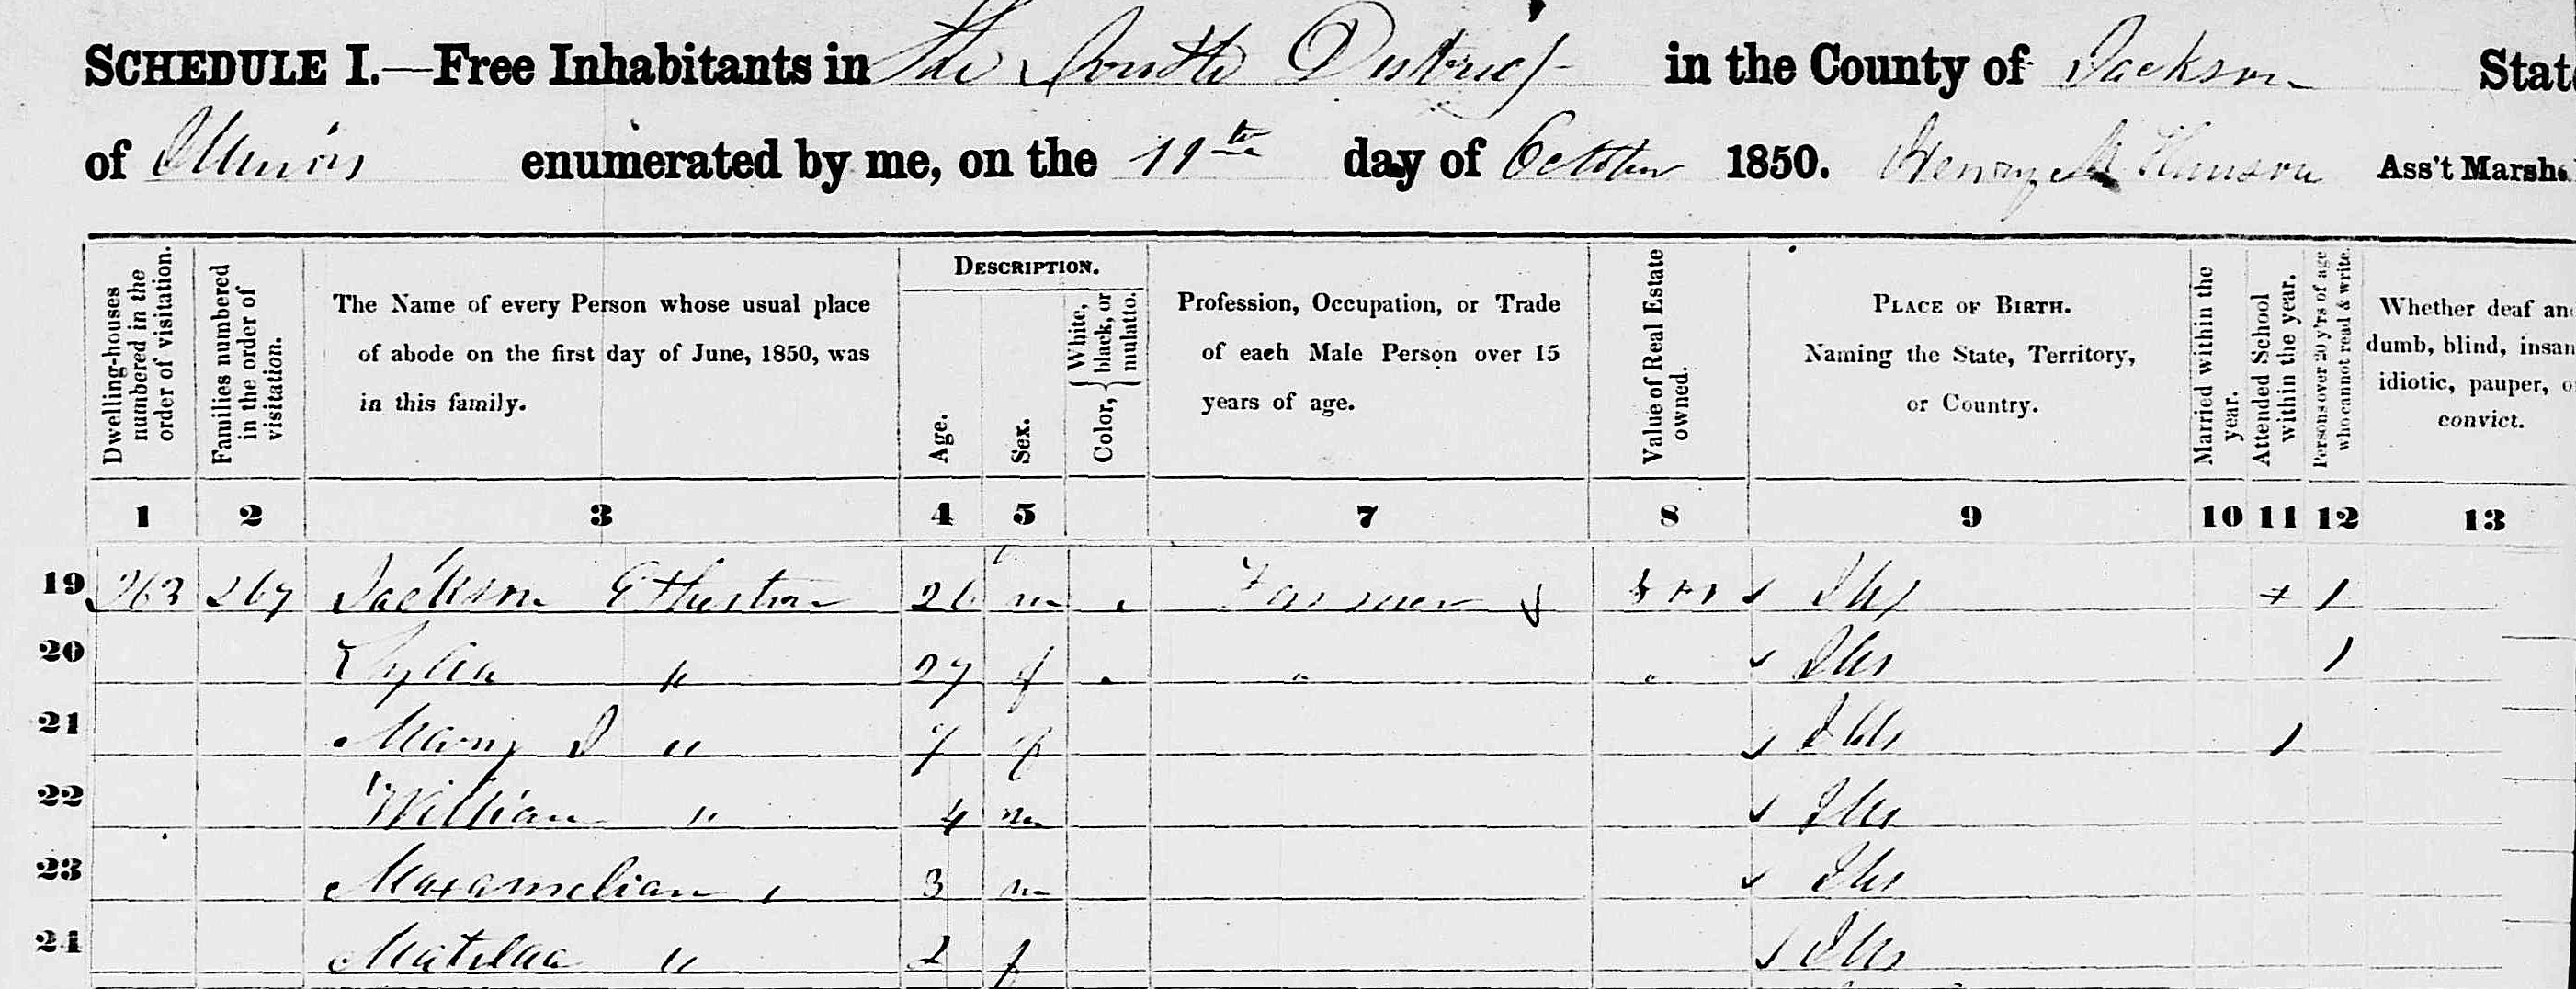 SCHEDULE I.—Free Inhabitants in The South District in the County of Jackson State
of Illinois enumerated by me, on the 11th day of October 1850. Henry Hanson Ass't Marsha
Dwelling-houses numbered in the order of visitation.
Families numbered in the order of visitation.
The Name of every Person whose usual place
of abode on the first day of June, 1850, was
in this family.
DESCRIPTION.
Age.
Sex.
Color, { White, black, or mulatto.
Profession, Occupation, or Trade
of each Male Person over 15
years of age.
Value of Real Estate owned.
PLACE OF BIRTH.
Naming the State, Territory,
or Country.
Married within the year.
Attended School within the year.
Persons over 20 y'rs of age who cannot read & write.
Whether deaf an
dumb, blind, insan
idiotic, pauper, o
convict.
1 2 3 4 5 7 8 9 10 11 12 13
19 263 267 Jackson Etherton 26 m Farmer Ills 1
20 " 27 f " Ills 1
21 Mary J " 7 f Ills 1
22 William " 4 m Ills
23 Maxamelian " 3 m Ills
24 Matilda " 2 f Ills